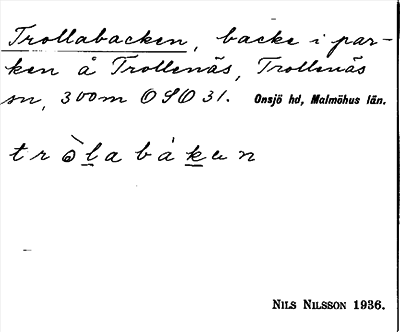 Trollabacken, backe i par-
ken å Trollenäs, Trollenäs
sn, 300m OSO 31. Onsjö hd, Malmöhus län.
tròlabáken
NILS NILSSON 1936.